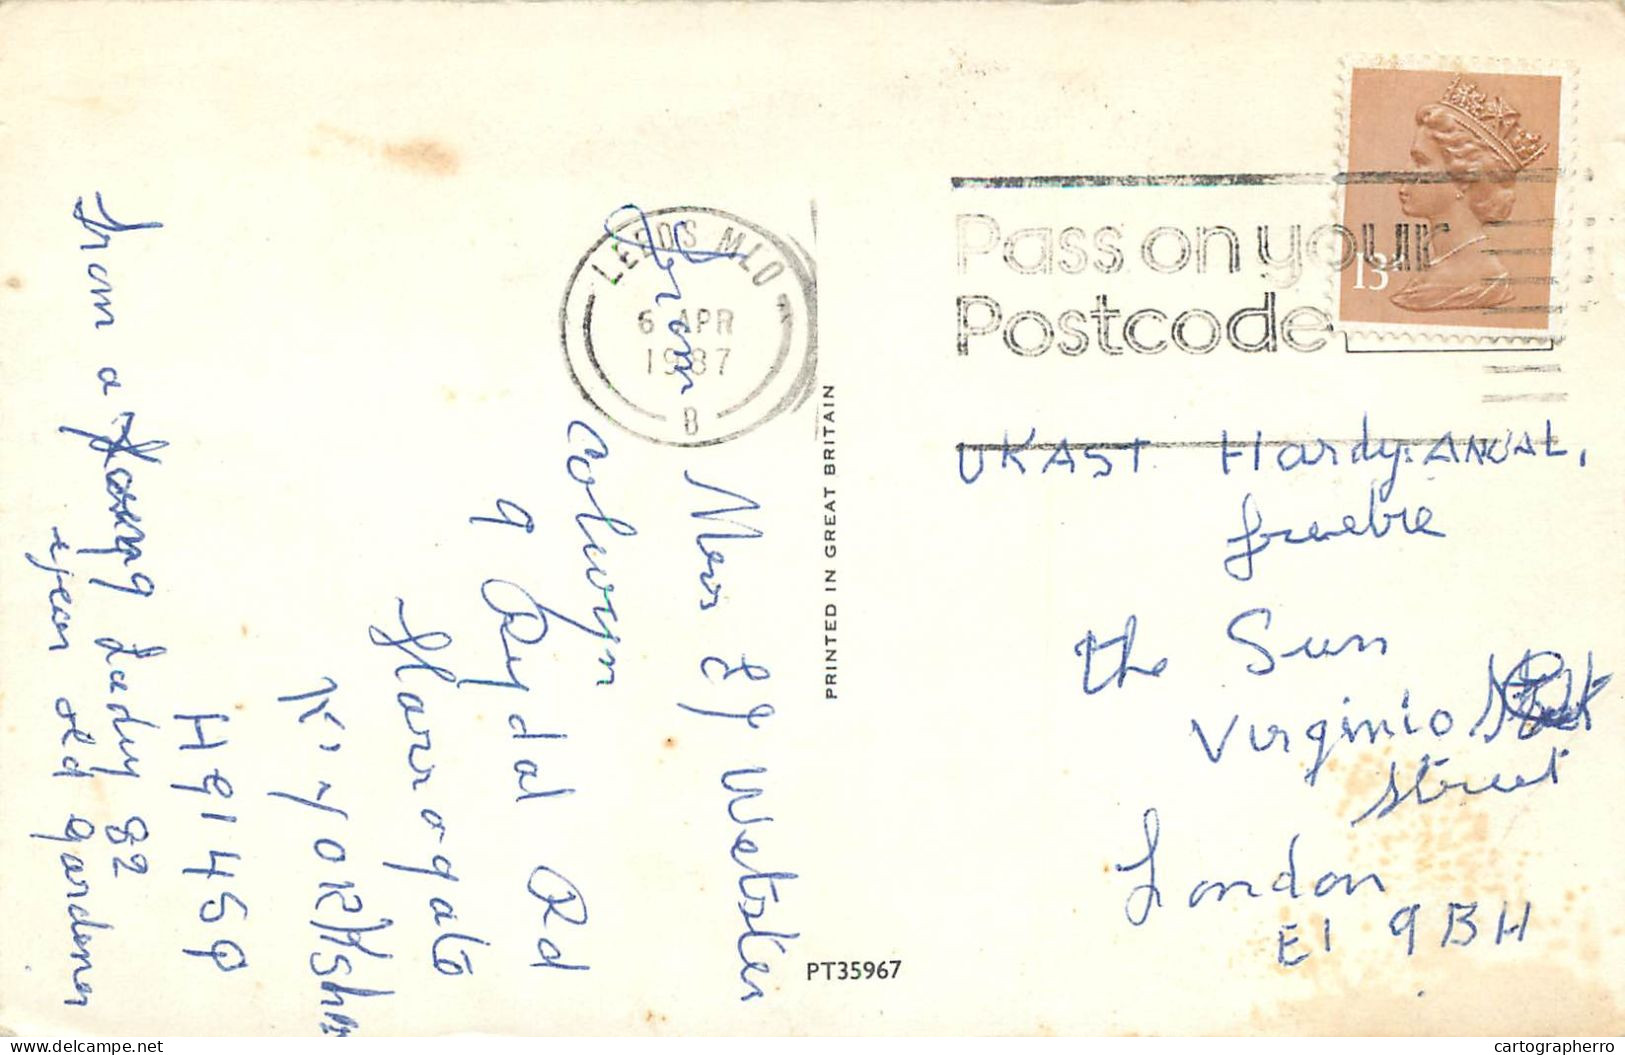 From
Mrs E J Webster
Colwyn
9 Rydal Rd
Harrogate
N. YORKSh
HG1 4SP
From a Young Lady 82
year old gardener
LEEDS MLO
6 APR
1987
B
Pass on your
Postcode
13P
PRINTED IN GREAT BRITAIN
PT35967
UKAST Hardy ANUAL,
freebie
the Sun
Virginio
Street
London
E1 9BH
delcampe.net
cartographerro